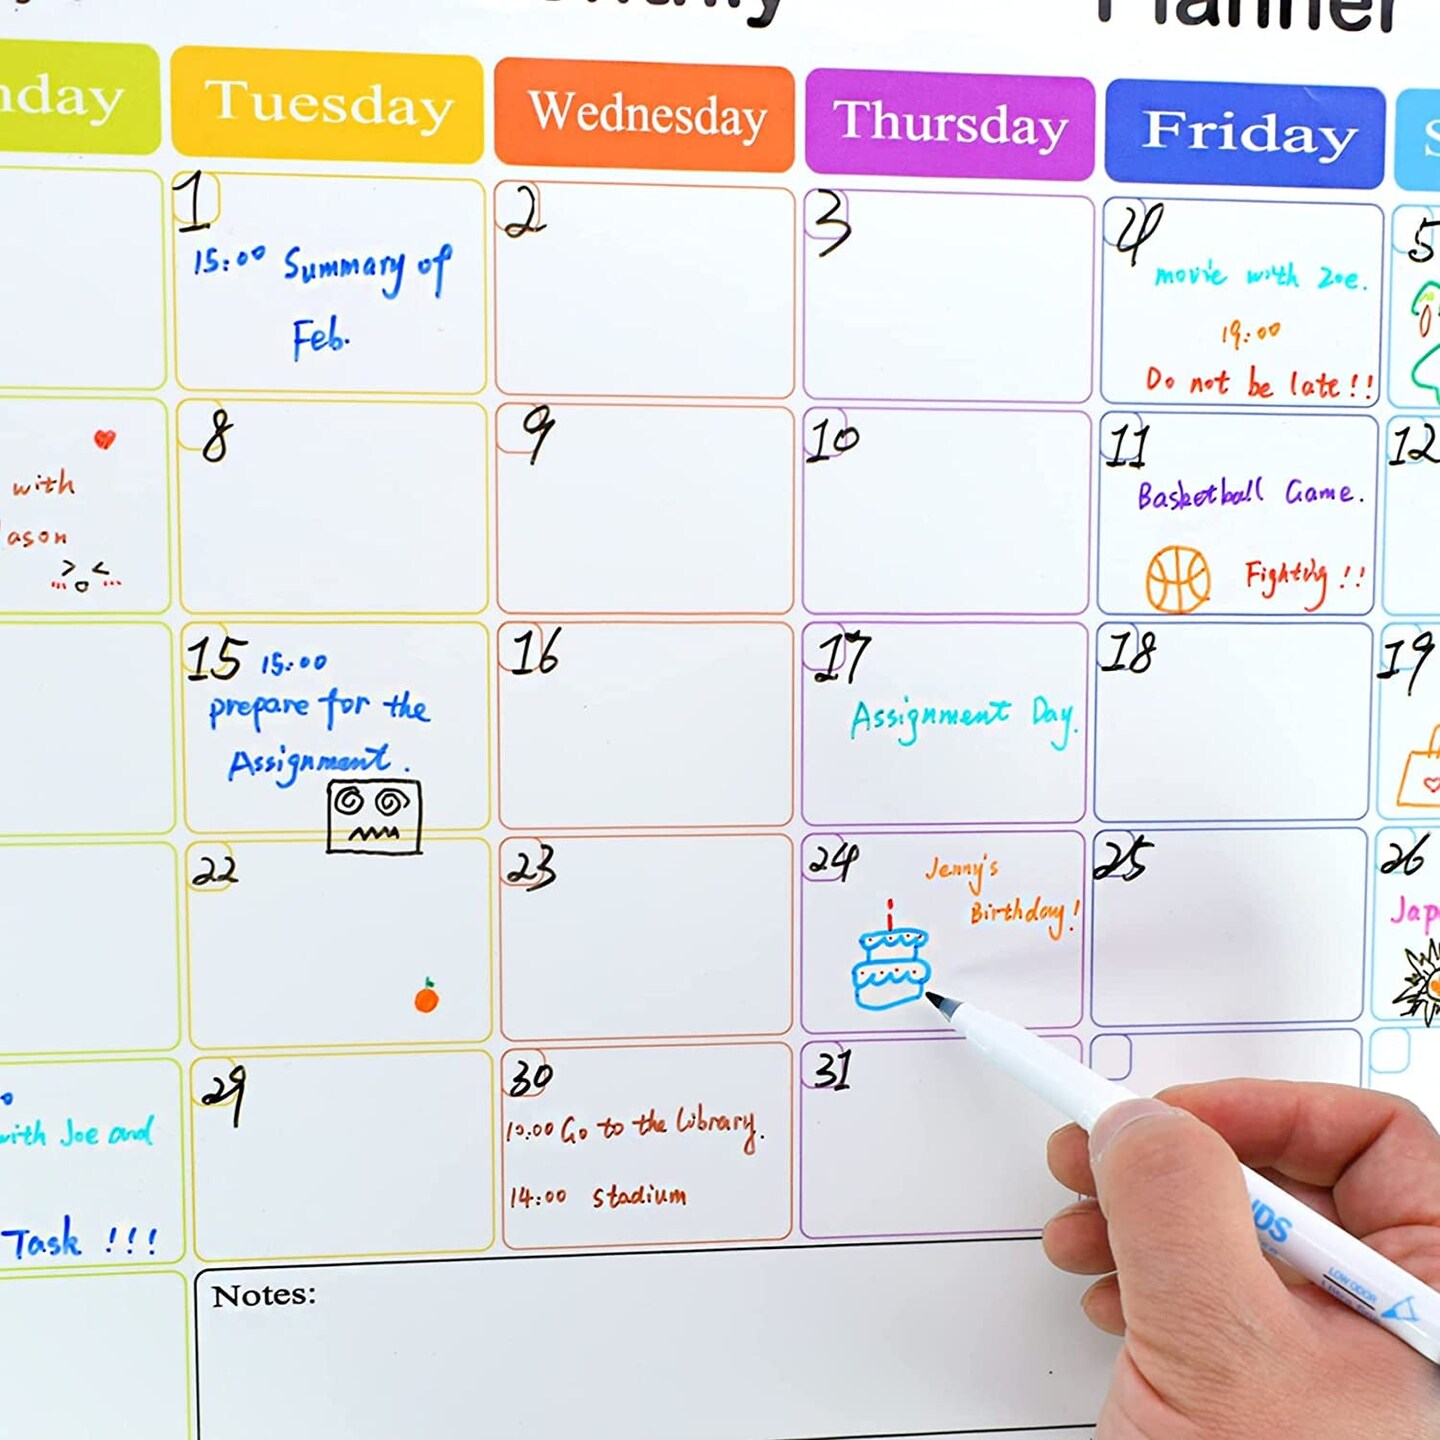 Planner
Tuesday
Wednesday
Thursday
Friday
1
15:00 Summary of
Feb.
2
3
4
movie with Zoe.
19:00
Do not be late!!
5
with
8
9
10
11
Basketball Game.
Fighting!!
12
15 15:00
prepare for the
Assignment.
16
17
Assignment Day.
18
19
22
23
24
Jenny's
Birthday!
25
26
with Joe and
Task !!!
29
30
10:00 Go to the Library.
14:00 stadium
31
Notes:
LOW ODOR